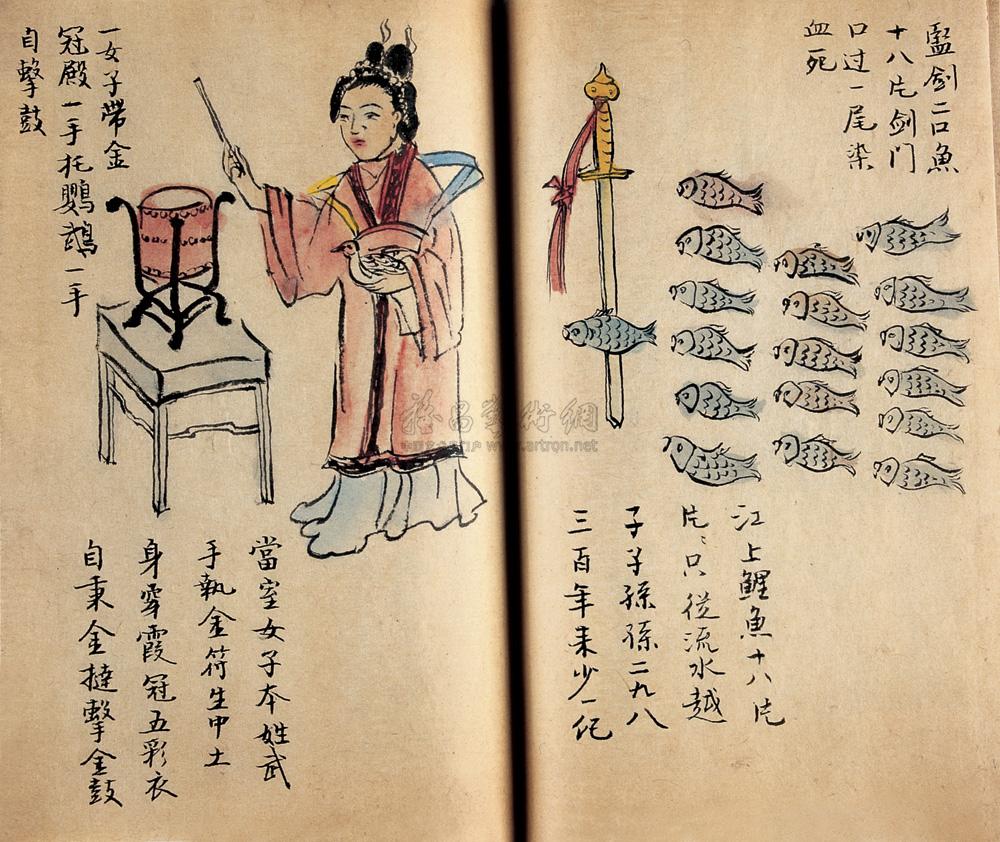 寳劍二口魚
十八片劍门
口过一尾染
血死
江上鲤魚十八片
片片只從流水越
子子孫孫二九八
三百年來少一仡
一女子带金
冠殿一手托鸚鵡一手
自擊鼓
當室女子本姓武
手執金符生中土
身穿霞冠五彩衣
自秉金撻擊金鼓
www.artron.net